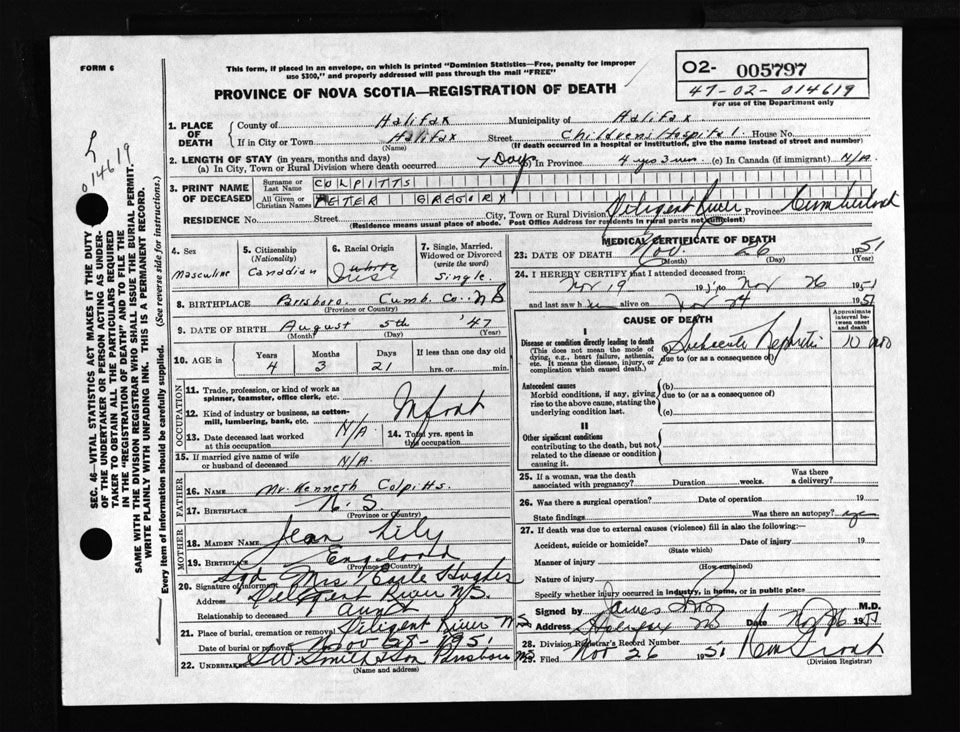 FORM 6
This form, if placed in an envelope, on which is printed "Dominion Statistics—Free, penalty for improper
use $300," and properly addressed will pass through the mail "FREE"
PROVINCE OF NOVA SCOTIA—REGISTRATION OF DEATH
02- 005797
47-02-014619
For use of the Department only
014619
SEC. 46—VITAL STATISTICS ACT MAKES IT THE DUTY
OF THE UNDERTAKER OR PERSON ACTING AS UNDER-
TAKER TO OBTAIN ALL THE PARTICULARS REQUIRED
IN THE "REGISTRATION OF DEATH" AND TO FILE THE
SAME WITH THE DIVISION REGISTRAR WHO SHALL ISSUE THE BURIAL PERMIT.
WRITE PLAINLY WITH UNFADING INK. THIS IS A PERMANENT RECORD.
Every item of information should be carefully supplied. (See reverse side for instructions.)
1. PLACE OF DEATH
County of Halifax Municipality of Halifax
If in City or Town Halifax Street Childrens Hospital House No.
(Name) (If death occurred in a hospital or institution, give the name instead of street and number)
2. LENGTH OF STAY (in years, months and days)
(a) In City, Town or Rural Division where death occurred 7 Days (b) In Province 4 yrs 3 ms (c) In Canada (if immigrant) N/A.
3. PRINT NAME OF DECEASED
Surname or Last Name COLPITTS
All Given or Christian Names PETER GREGORY
RESIDENCE No. Street City, Town or Rural Division Diligent River Province Cumberland
(Residence means usual place of abode. Post Office Address for residents in rural parts not sufficient)
4. Sex
Masculine
5. Citizenship (Nationality)
Canadian
6. Racial Origin
White
7. Single, Married, Widowed or Divorced (write the word)
Single.
8. BIRTHPLACE Parrsboro. Cumb. Co. NS
(Province or Country)
9. DATE OF BIRTH August 5th '47
(Month) (Day) (Year)
10. AGE in Years Months Days If less than one day old
4 3 21 hrs. or min.
OCCUPATION
11. Trade, profession, or kind of work as spinner, teamster, office clerk, etc.
12. Kind of industry or business, as cotton-mill, lumbering, bank, etc.
Infant
13. Date deceased last worked at this occupation N/A.
14. Total yrs. spent in this occupation
15. If married give name of wife or husband of deceased N/A.
FATHER
16. Name Mr. Kenneth Colpitts.
17. Birthplace N.S.
(Province or Country)
MOTHER
18. Maiden Name Jean Lily
19. Birthplace England
(Province or Country)
20. Signature of informant Sgd Mrs Earle Hughes
Address Diligent River N.S.
Relationship to deceased aunt
21. Place of burial, cremation or removal Diligent River NS
Date of burial or removal Nov 28-1951
22. Undertaker SW Smith & Son Parrsboro NS
(Name and address)
MEDICAL CERTIFICATE OF DEATH
23. DATE OF DEATH Nov. 26 1951
(Month) (Day) (Year)
24. I HEREBY CERTIFY that I attended deceased from:
Nov 19 1951 to Nov 26 1951
and last saw him alive on Nov 24 1951
CAUSE OF DEATH
Approximate interval between onset and death
I
Disease or condition directly leading to death
(This does not mean the mode of dying, e.g., heart failure, asthenia, etc. It means the disease, injury, or complication which caused death.)
(a) Subacute Nephritis 10
due to (or as a consequence of)
Antecedent causes
Morbid conditions, if any, giving rise to the above cause, stating the underlying condition last.
(b)
due to (or as a consequence of)
(c)
II
Other significant conditions
contributing to the death, but not related to the disease or condition causing it.
25. If a woman, was the death associated with pregnancy? Duration weeks. Was there a delivery?
26. Was there a surgical operation? Date of operation 19
State findings Was there an autopsy? yes
27. If death was due to external causes (violence) fill in also the following:—
Accident, suicide or homicide? Date of injury 19
(State which)
Manner of injury
(How sustained)
Nature of injury
Specify whether injury occurred in industry, in home, or in public place
Signed by James M.D.
Address Halifax NS Date Nov 26 1951
28. Division Registrar's Record Number
29. Filed Nov 26 1951
(Division Registrar)